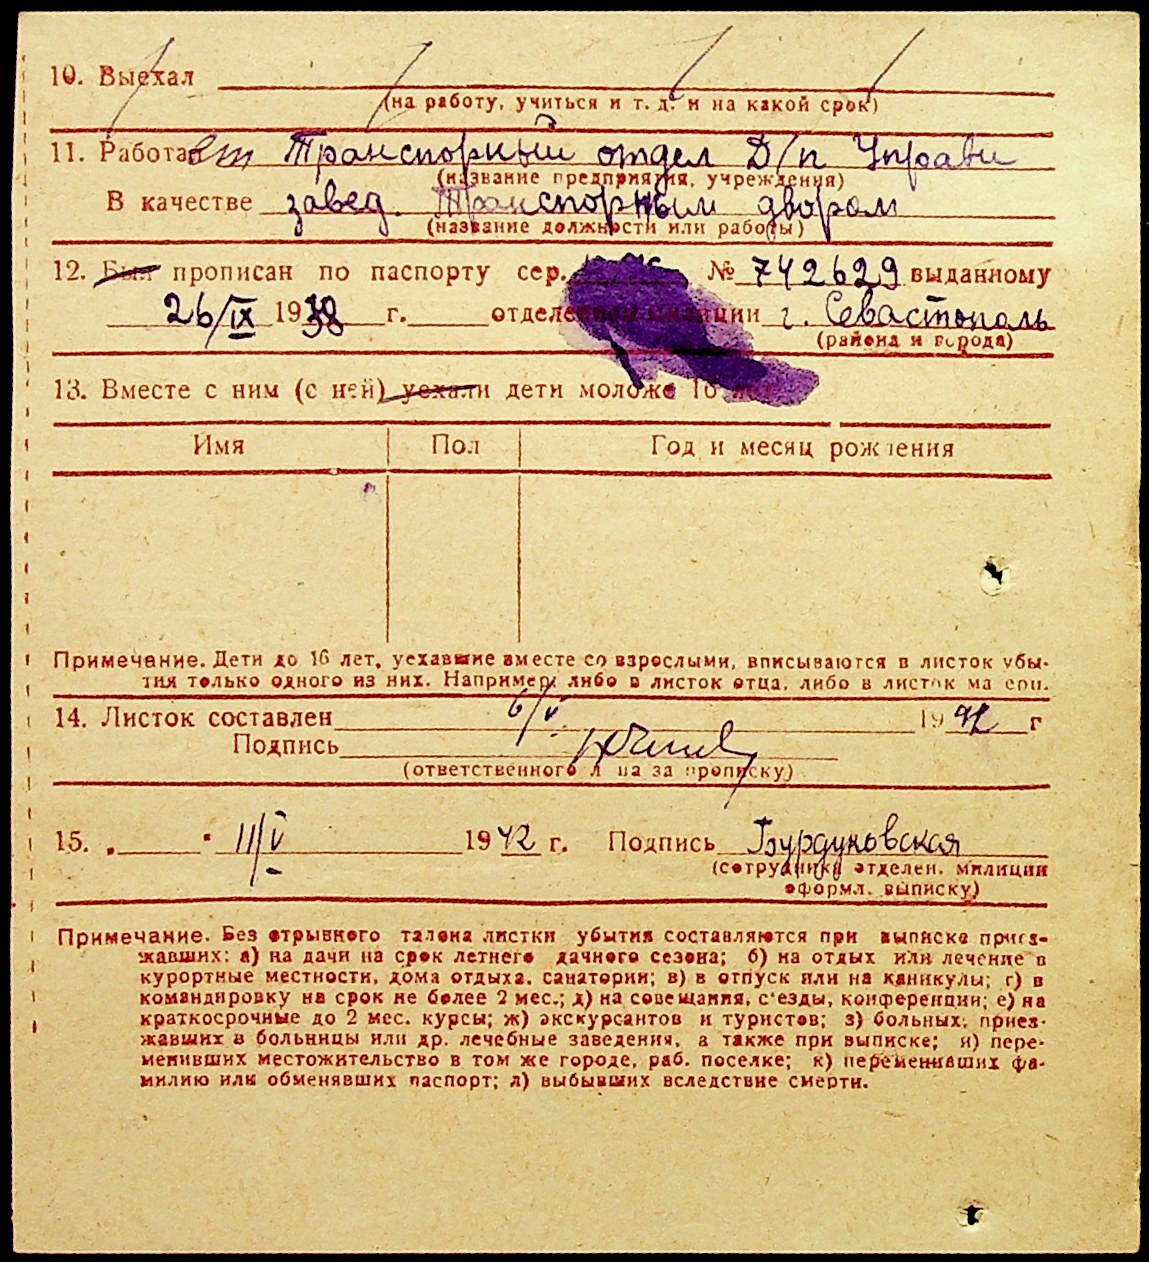 10. Выехал
(на работу, учиться и т. д. и на какой срок)
11. Работает Транспорный отдел Д/п Управи
(название предприятия, учреждения)
В качестве завед. Транспорным двором
(название должности или работы)
12. Был прописан по паспорту сер. № 742629 выданному
26/IX 1938 г. отделением милиции г. Севастополь
(района и города)
13. Вместе с ним (с ней) уехали дети моложе 16 лет
Имя Пол Год и месяц рождения
Примечание. Дети до 16 лет, уехавшие вместе со взрослыми, вписываются в листок убы-
тия только одного из них. Например: либо в листок отца, либо в листок матери.
14. Листок составлен 6/V 1942 г
Подпись
(ответственного лица за прописку)
15. „ " 11/V 1942 г. Подпись Бурдуковская
(сотрудника отделен. милиции
оформл. выписку)
Примечание. Без отрывного талона листки убытия составляются при выписке приез-
жавших: а) на дачи на срок летнего дачного сезона; б) на отдых или лечение в
курортные местности, дома отдыха, санатории; в) в отпуск или на каникулы; г) в
командировку на срок не более 2 мес.; д) на совещания, с'езды, конференции; е) на
краткосрочные до 2 мес. курсы; ж) экскурсантов и туристов; з) больных, приез-
жавших в больницы или др. лечебные заведения, а также при выписке; и) пере-
менивших местожительство в том же городе, раб. поселке; к) переменивших фа-
милию или обменявших паспорт; л) выбывших вследствие смерти.